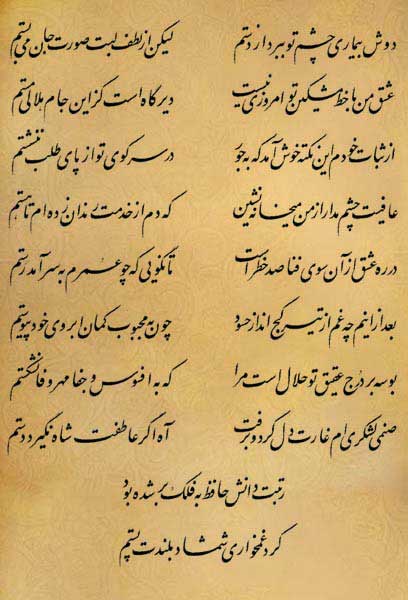 دوش بیماری چشم تو ببرد از دستم لیکن از لطف لبت صورت جان می بستم
عشق من با خط مشکین تو امروزی نیست دیرگاه است کزین جام هلالی مستم
از ثبات خودم این نکته خوش آمد که به جور در سر کوی تو از پای طلب ننشستم
عافیت چشم مدار از من میخانه نشین که دم از خدمت رندان زده ام تا هستم
در ره عشق از آن سوی فنا صد خطر است تا نگویی که چو عمرم به سر آمد رستم
بعد از اینم چه غم از تیر کج انداز حسود چون به محبوب کمان ابروی خود پیوستم
بوسه بر درج عقیق تو حلال است مرا که به افسوس و جفا مهر وفا نشکستم
صنمی لشکری ام غارت دل کرد و برفت آه اگر عاطفت شاه نگیرد دستم
رتبت دانش حافظ به فلک بر شده بود
کرد غمخواری شمشاد بلندت پستم